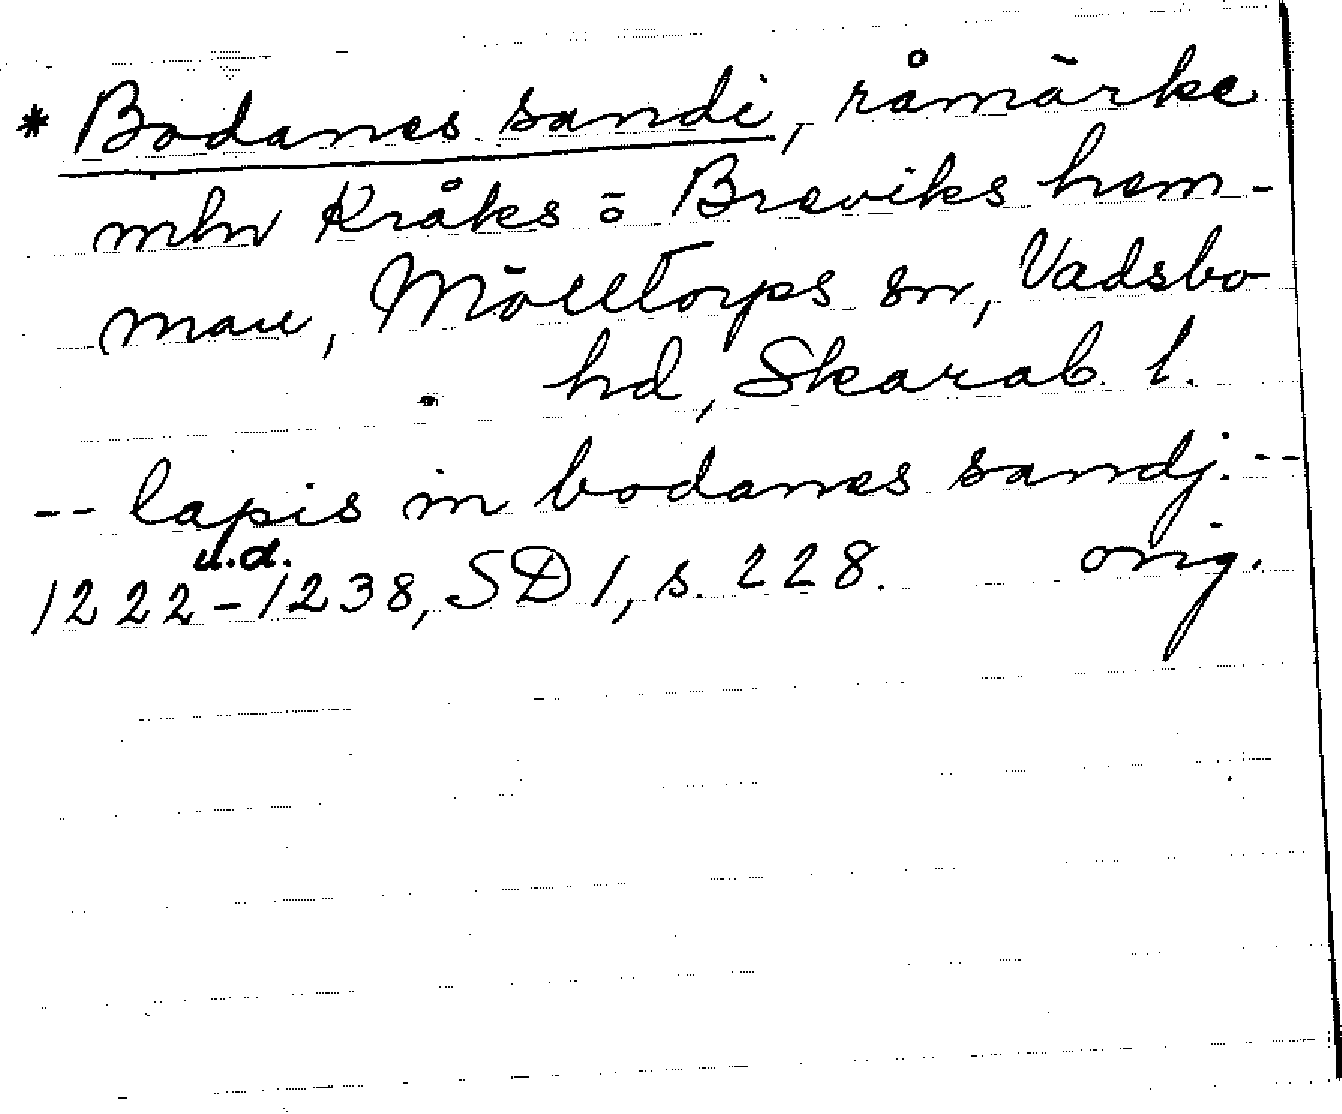 * Bodanes sandi, råmärke
mln Kråks o Breviks hem-
man, Mölltorps sn, Vadsbo
hd, Skarab. l.
-- lapis in bodanes sandj. --
u.d.
1222-1238, SD 1, s. 228. orig.